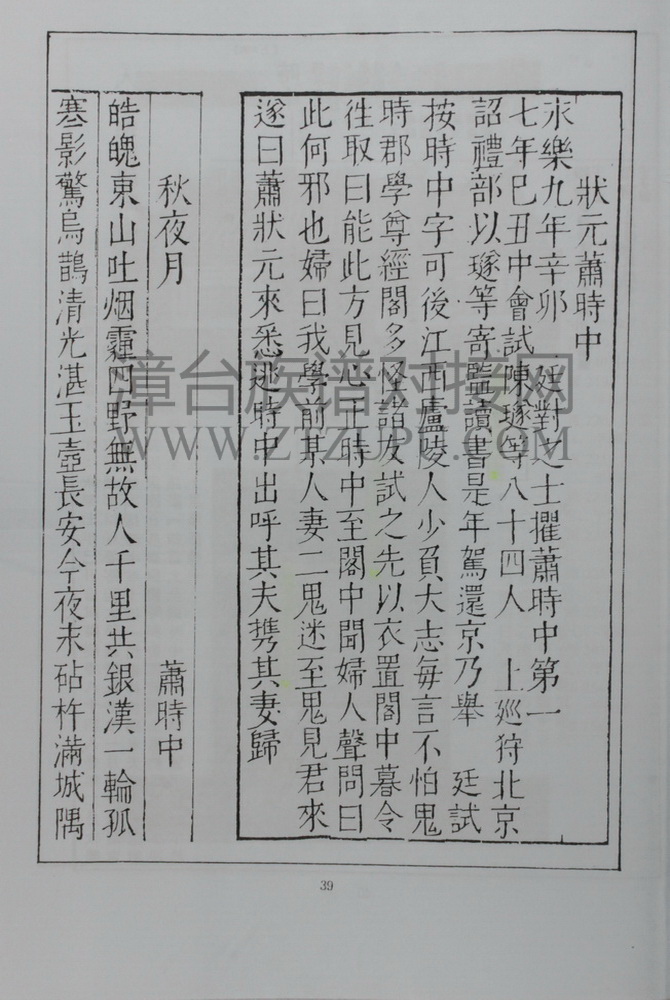 狀元蕭時中
永樂九年辛卯 廷對之士擢蕭時中第一
七年巳丑中會試陳璲等八十四人 上廵狩北京
詔禮部以璲等寄監讀書是年駕還京乃舉 廷試
按時中字可後江西廬陵人少負大志每言不怕鬼
時郡學尊經閣多怪諸友試之先以衣置閣中暮令
徃取曰能此方見心正時中至閣中聞婦人聲問曰
此何邪也婦曰我學前某人妻二鬼迷至鬼見君來
遂曰蕭狀元來悉逃時中出呼其夫携其妻歸
秋夜月 蕭時中
皓魄東山吐烟霾四野無故人千里共銀漢一輪孤
寒影驚烏鵲清光湛玉壺長安今夜末砧杵滿城隅
漳台族谱对接网
WWW.ZTZUPU.COM
39